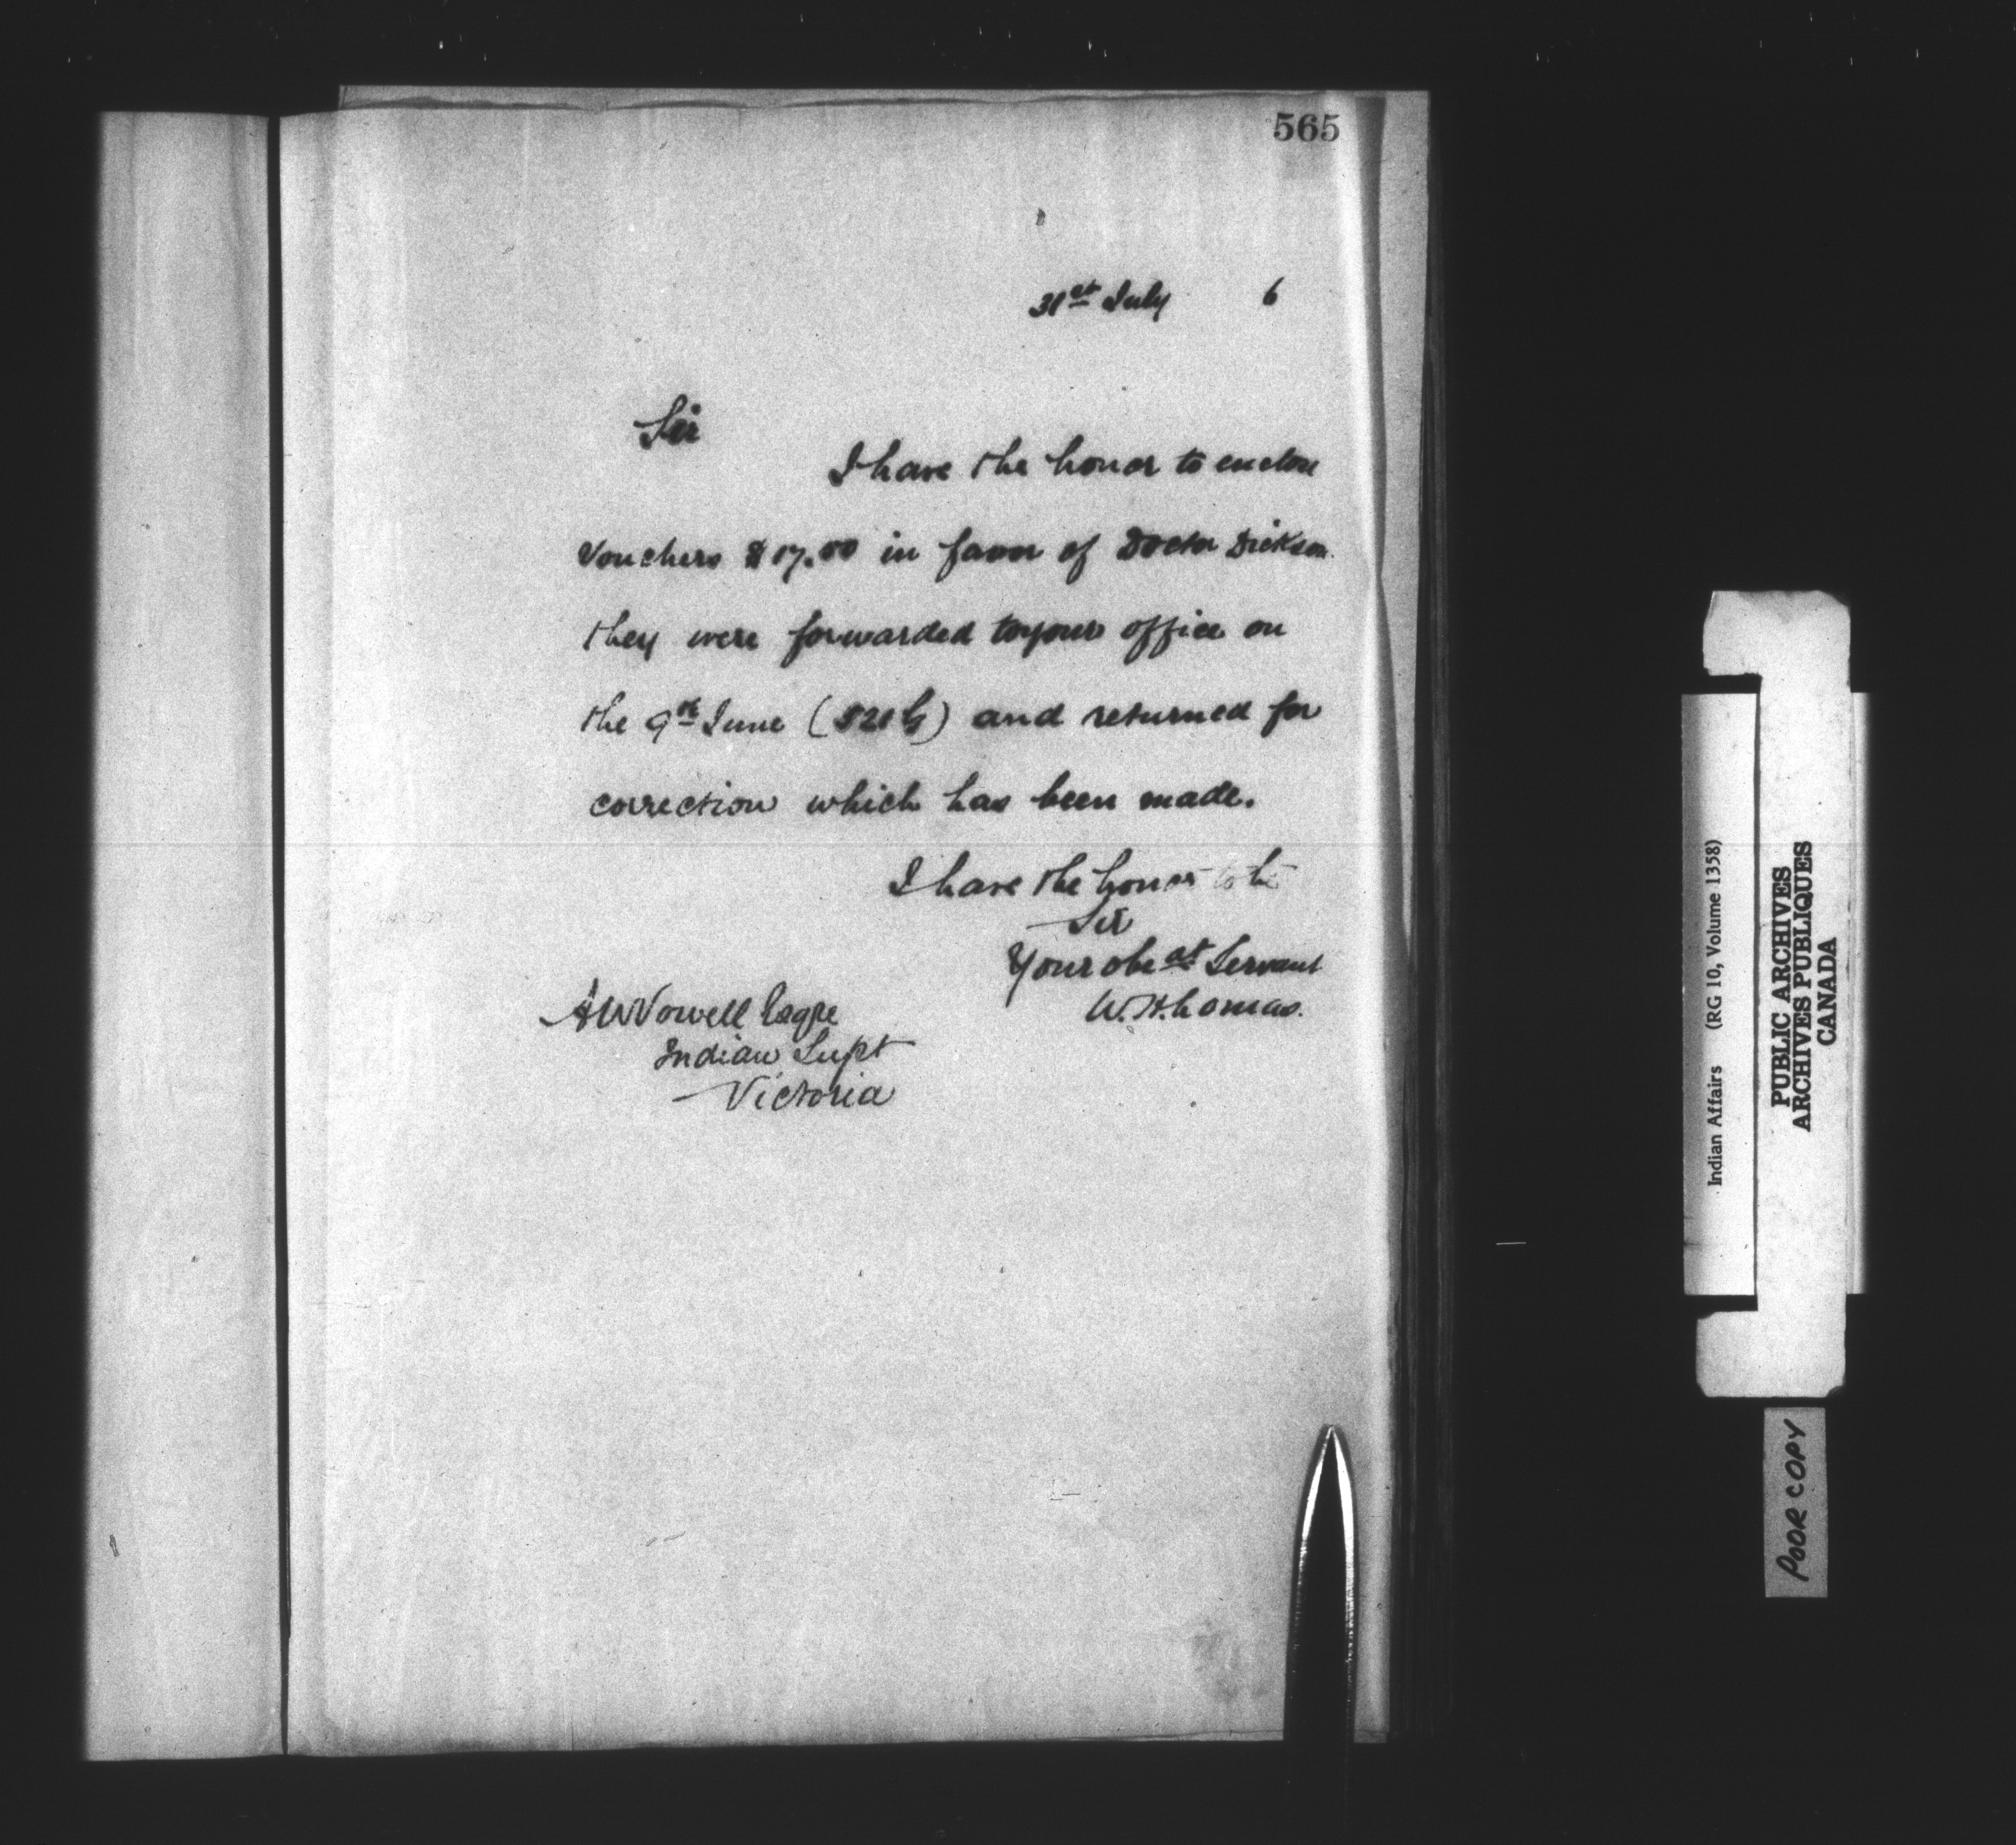 565
31st July 6
Sir
I have the honor to enclose
Vouchers $17.50 in favor of Doctor Dickson
they were forwarded to your office on
the 9th June (521 G) and returned for
correction which has been made.
I have the honor to be
Sir
Your obe dt Servant
W. H. Lomas.
A W Vowell Esqre
Indian Supt
Victoria
Indian Affairs (RG 10, Volume 1358)
PUBLIC ARCHIVES
ARCHIVES PUBLIQUES
CANADA
POOR COPY